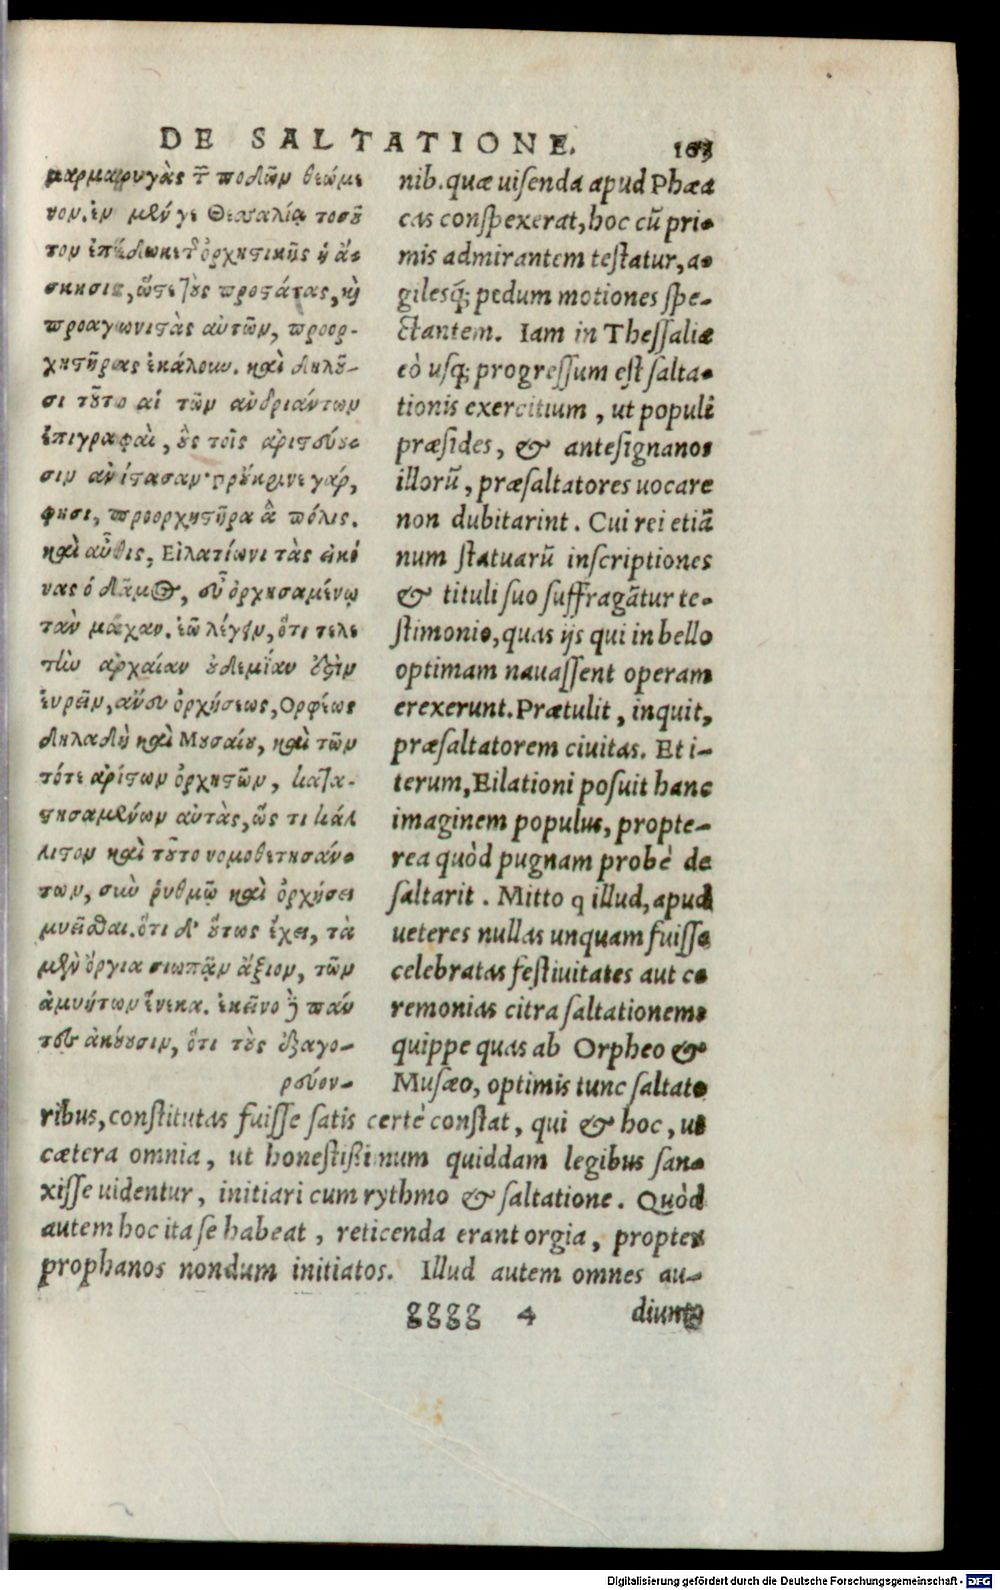 DE SALTATIONE. 163
μαρμαρυγὰς τ̃ ποδῶν θεώμε
νον. ἐν μὲν γε Θεσσαλίᾳ τοσȣ̃
τον ἐπέδωκε τ̃ ὀρχηστικῆς ἡ ἄ-
σκησις, ὥστε τοὺς προστάτας, καὶ
προαγωνιστὰς αὐτῶν, προορ-
χηστῆρας ἐκάλουν. καὶ δηλȣ̃-
σι τȣ̃το αἱ τῶν ἀνδριάντων
ἐπιγραφαὶ, ȣ̓ς τοῖς ἀριστεύȣ-
σιν ἀνίστασαν· πρȣ́κρινε γάρ,
φησι, προορχηστῆρα ἁ πόλις.
καὶ αὖθις, Εἰλατίωνι τὰς εἰκό
νας ὁ δᾶμος, εὖ ὀρχησαμένῳ
τὰν μάχαν. ἐῶ λέγειν, ὅτι τελε
τὴν ἀρχαίαν ȣ̓δεμίαν ἐστὶν
ἑυρεῖν, ἄνευ ὀρχήσεως, Ορφέως
δηλαδὴ καὶ Μȣσαίȣ, καὶ τῶν
τότε ἀρίστων ὀρχηστῶν, κατα-
στησαμένων αὐτὰς, ὥς τι κάλ
λιστον καὶ τȣ̃το νομοθετησάν-
των, σὺν ῥυθμῷ καὶ ὀρχήσει
μυεῖσθαι. ὅτι δ' ȣ̔́τως ἔχει, τὰ
μὲν ὄργια σιωπᾷν ἄξιον, τῶν
ἀμυήτων ἕνεκα. ἐκεῖνο δὲ πάν
τες ἀκȣ́ȣσιν, ὅτι τȣ̀ς ἐξαγο-
ρεύον-
nib. quæ uisenda apud Phæa
cas conspexerat, hoc cũ pri-
mis admirantem testatur, a-
gilesq́; pedum motiones spe-
ctantem. Iam in Thessaliæ
eò usq; progressum est salta-
tionis exercitium, ut populi
præsides, & antesignanos
illorũ, præsaltatores uocare
non dubitarint. Cui rei etiã
num statuarũ inscriptiones
& tituli suo suffragãtur te-
stimonio, quas ijs qui in bello
optimam nauassent operam
erexerunt. Prætulit, inquit,
præsaltatorem ciuitas. Et i-
terum, Eilationi posuit hanc
imaginem populus, propte-
rea quòd pugnam probè de
saltarit. Mitto q illud, apud
ueteres nullas unquam fuisse
celebratas festiuitates aut ce
remonias citra saltationem,
quippe quas ab Orpheo &
Musæo, optimis tunc saltato
ribus, constitutas fuisse satis certè constat, qui & hoc, ut
cætera omnia, ut honestißimum quiddam legibus san-
xisse uidentur, initiari cum rythmo & saltatione. Quòd
autem hoc ita se habeat, reticenda erant orgia, propter
prophanos nondum initiatos. Illud autem omnes au-
gggg 4 diunt
Digitalisierung gefördert durch die Deutsche Forschungsgemeinschaft - DFG